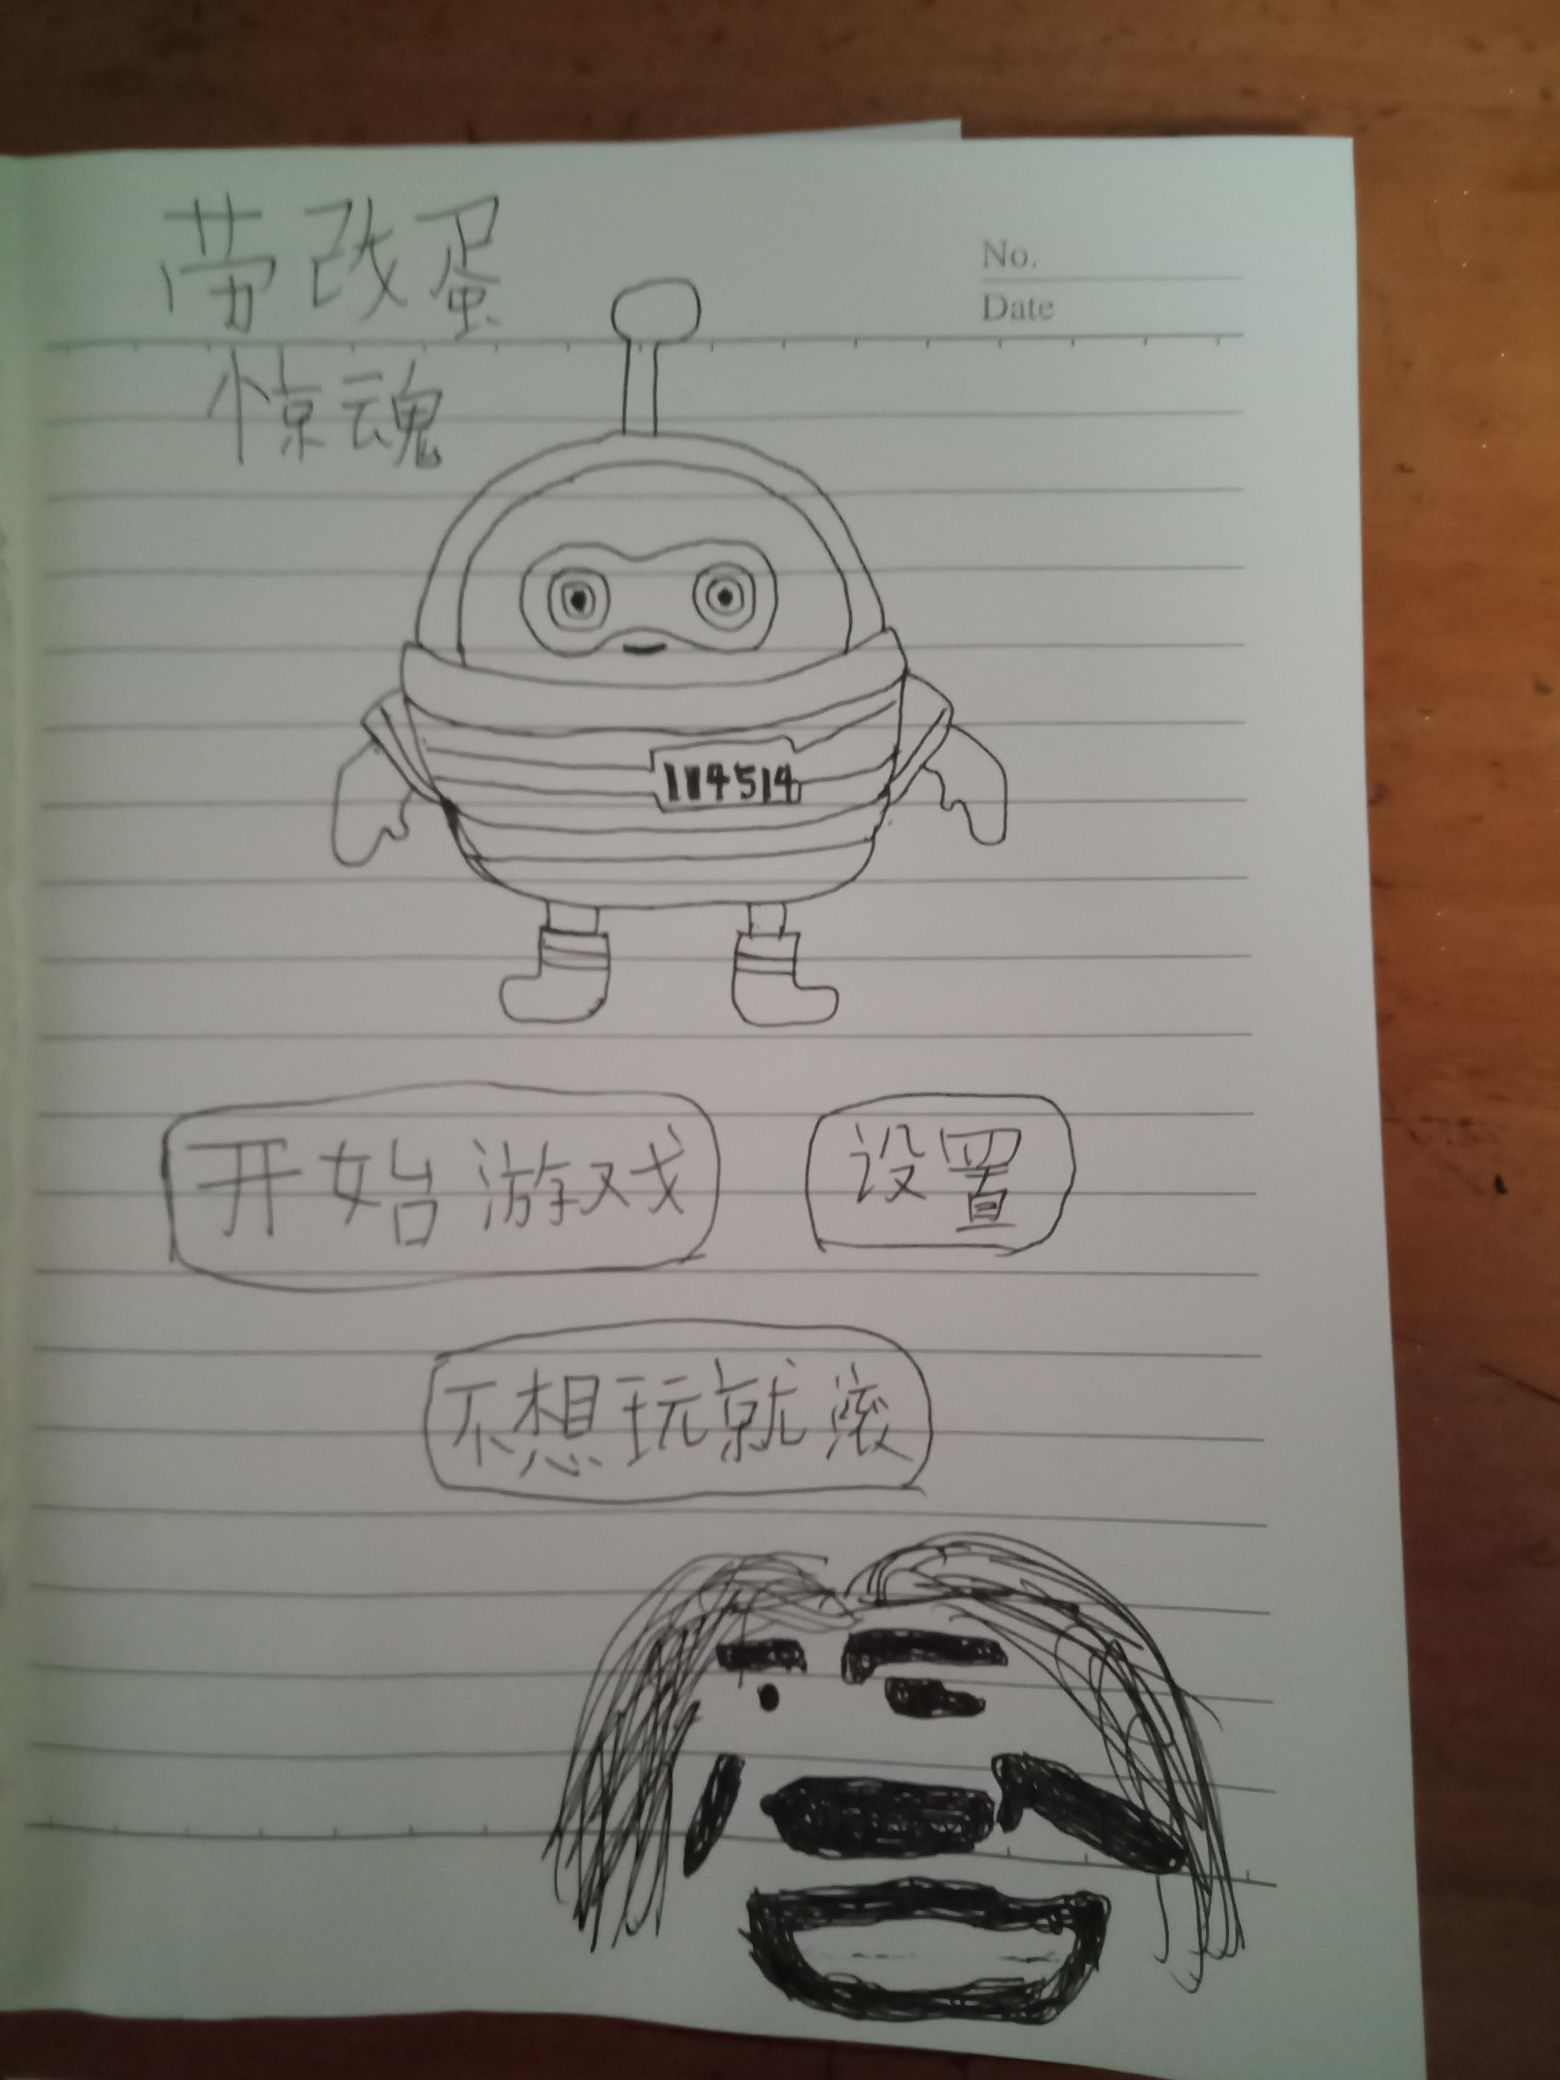 劳改蛋
惊魂
No.
Date
114514
开始游戏
设置
不想玩就滚